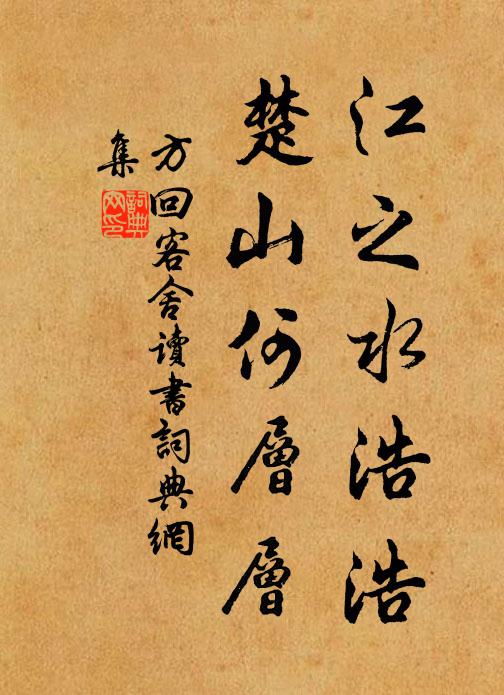 江之水浩浩
楚山何層層
方回客舍讀書詞典網
集
詞典
网印